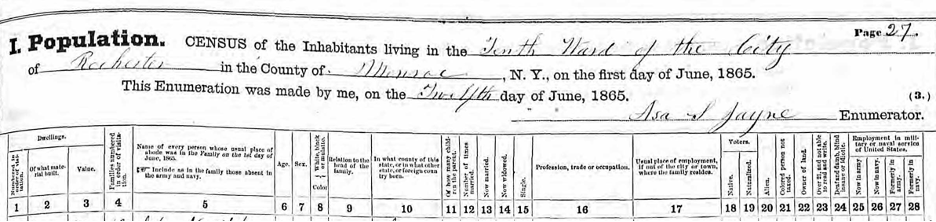 Page 27
I. Population. CENSUS of the Inhabitants living in the Tenth Ward of the City
of Rochester in the County of Monroe, N. Y., on the first day of June, 1865.
This Enumeration was made by me, on the Twelfth day of June, 1865.
(3.)
Asa S Jayne Enumerator.
Dwellings.
Of what material built.
Value.
Families numbered in the order of visitation.
Name of every person whose usual place of abode was in the Family on the 1st day of June, 1865.
Include as in the family those absent in the army and navy.
Age.
Sex.
White, black or mulatto.
Color
Relation to the head of the family.
In what county of this state, or in what other state, or foreign country born.
Of how many children the parent.
Number of times married.
Now married.
Now widowed.
Single.
Profession, trade or occupation.
Usual place of employment, if out of the city or town, where the family resides.
Voters.
Native.
Naturalized.
Alien.
Colored person not taxed.
Owner of land.
Over 21 and not able to read and write.
Deaf and dumb, blind insane or idiotic.
Employment in military or naval service of United States.
Now in army.
Now in navy.
Formerly in army.
Formerly in navy.
1 2 3 4 5 6 7 8 9 10 11 12 13 14 15 16 17 18 19 20 21 22 23 24 25 26 27 28